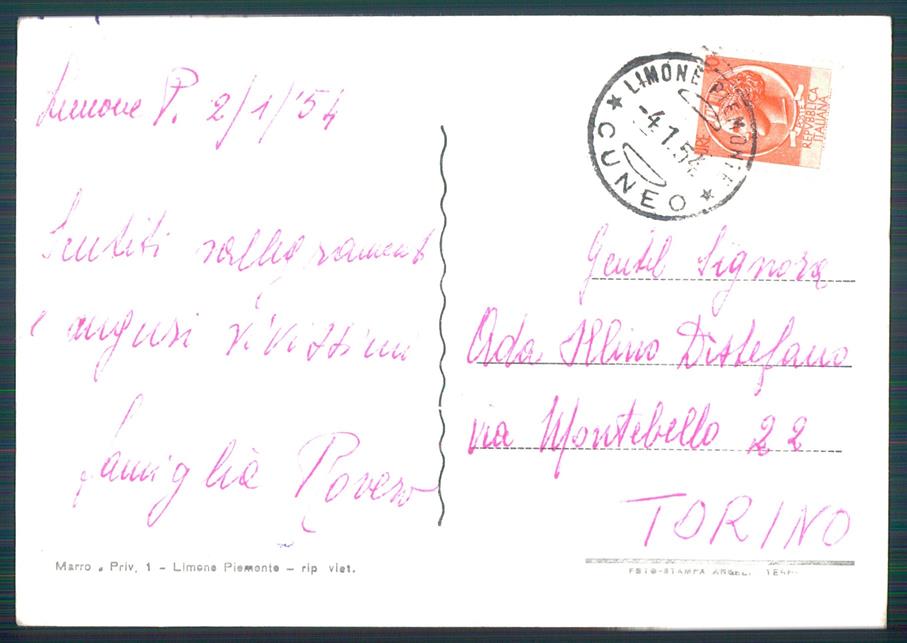 Limone P. 2/1/'54
Sentiti rallegramenti
e auguri vivissimi
famiglia Rovero
Marro . Priv, 1 - Limone Piemonte - rip viet.
LIMONE PIEMONTE
-4.1.54
★ CUNEO ★
POSTE
REPVBBLICA
ITALIANA
LIRE
Gentil Signora
Ada Distefano
via Montebello 22
TORINO
FOTO-STAMPA ANGELI